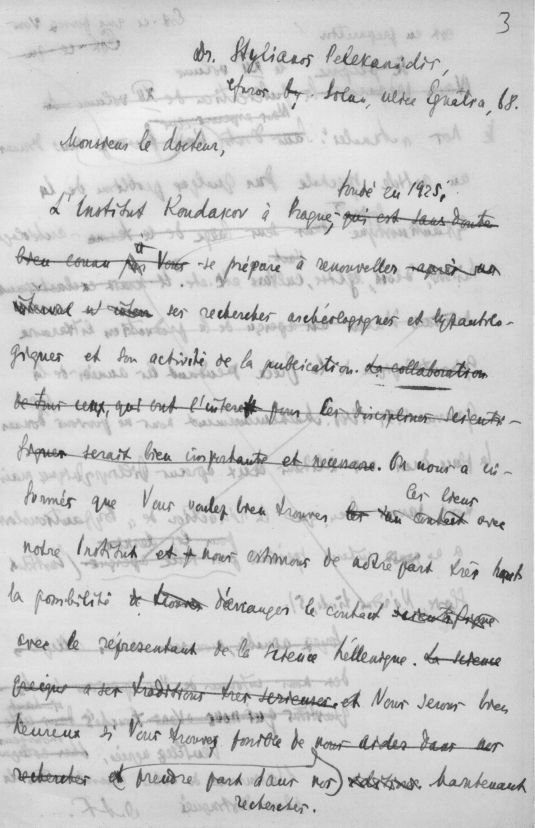 3
Dr. Stylianos Pelekanidis,
Éfaros by. Solun, ulice Egnatia, 68.
Monsieur le docteur,
fondé en 1925,
L'Institut Kondakov à Prague, qui est sans doute
bien connu à Vous se prépare à renouveller après un
interval ses recherches archéologiques et byzantolo-
giques et son activité de la publication. La collaboration
de tous ceux, qui ont l'interêt pour les disciplines scienti-
fiques serait bien importante et necessaire. On nous a in-
les liens
formés que Vous voulez bien trouver contact avec
notre Institut et nous estimons de notre part très haut
la possibilité de trouver d'arranger le contact scientifique
avec le répresentant de la science hellenique. La science
greique a ses traditions très serieuses et Nous serons bien
heureux si Vous trouvez possible de nous aider dans nos
recherches et prendre part dans nos éditions. Maintenant
recherches.